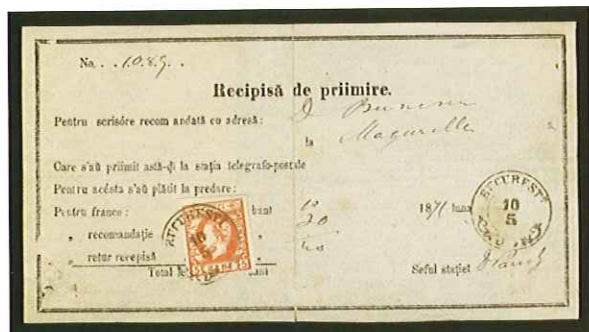 No. . .1089. .
Recipisă de priimire.
Pentru scrisóre recomandată cu adresă: D
la Magurelle
Care s'aŭ priimit astă-ḑi la stația telegrafo-postale
Pentru acésta s'aŭ plătit la predare:
Pentru franco: bani 10 1871 luna
„ recomandație „ 20
„ retur recepisă „
Total lei bani Șeful stației
BUCURESTI 10 5
BUCURESTI 10 5
5 BANI 5